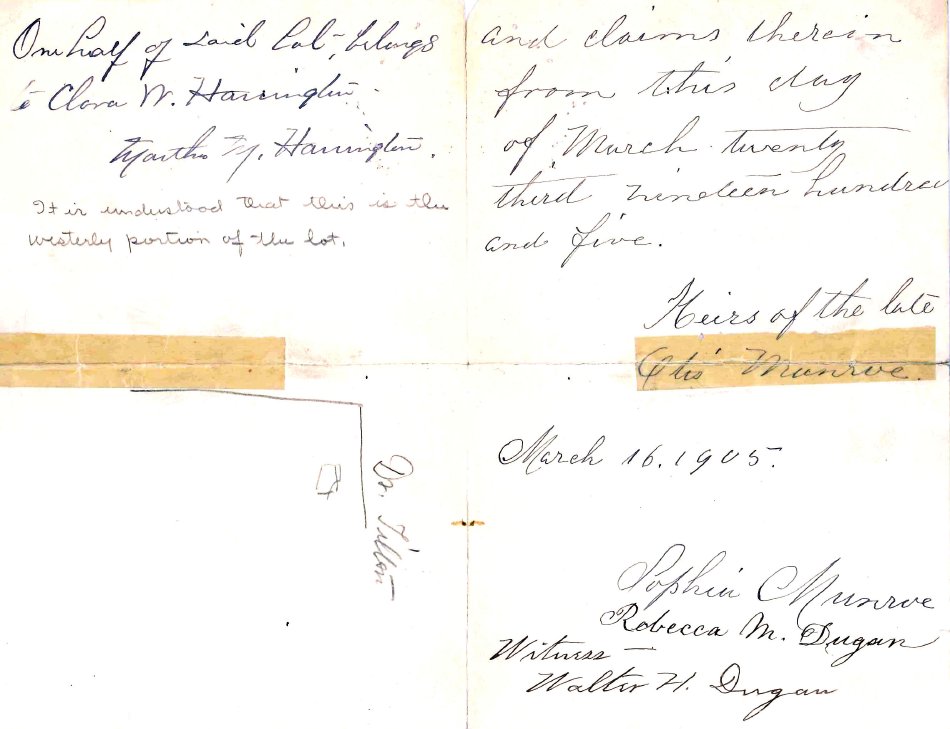 One half of said lot, belongs
to Clara W. Harrington.
Martha M. Harrington.
It is understood that this is the
westerly portion of the lot.
Dr. Tilton
and claims therein
from this day
of March twenty
third nineteen hundred
and five.
Heirs of the late
Otis Munroe.
March 16. 1905.
Sophia Munroe
Rebecca M. Dugan
Witness —
Walter H. Dugan